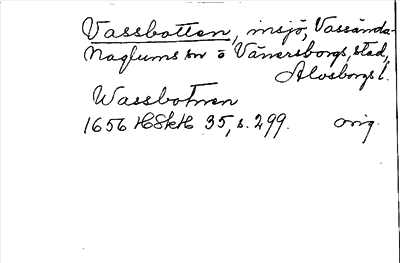 Vassbotten, insjö, Vassända-
Naglums sn o Vänersborgs stad,
Älvsborgs l.
Wassbotnen
1656 HSkH 35, s. 299. orig.